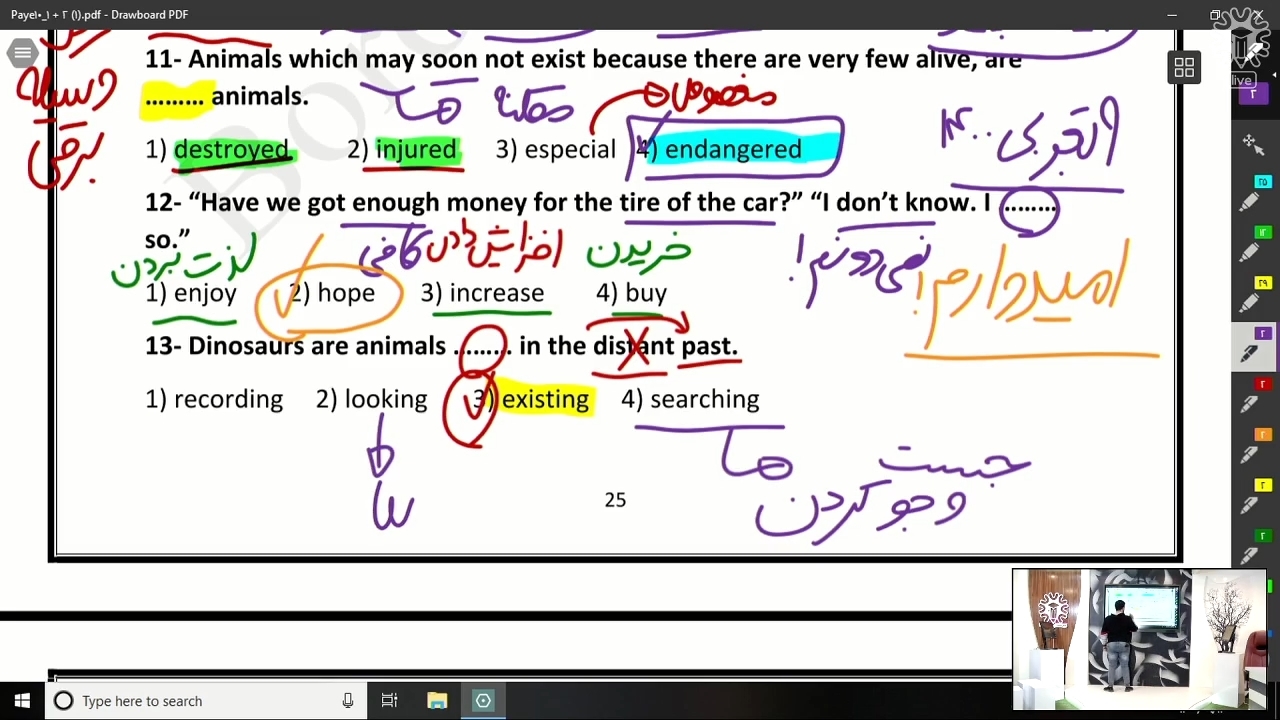 Paye۱۰_۱ + ۲ (۱).pdf - Drawboard PDF
live
11- Animals which may soon not exist because there are very few alive, are
......... animals.
وسیله
برقی
مخصوص
1) destroyed 2) injured 3) especial 4) endangered
12- “Have we got enough money for the tire of the car?” “I don’t know. I ........
so.”
لذت بردن
کافی
افزایش دادن
خریدن
نمی دونم!
امیدوارم!
1) enjoy 2) hope 3) increase 4) buy
13- Dinosaurs are animals ......... in the distant past.
1) recording 2) looking 3) existing 4) searching
جست
و جو کردن
25
Type here to search